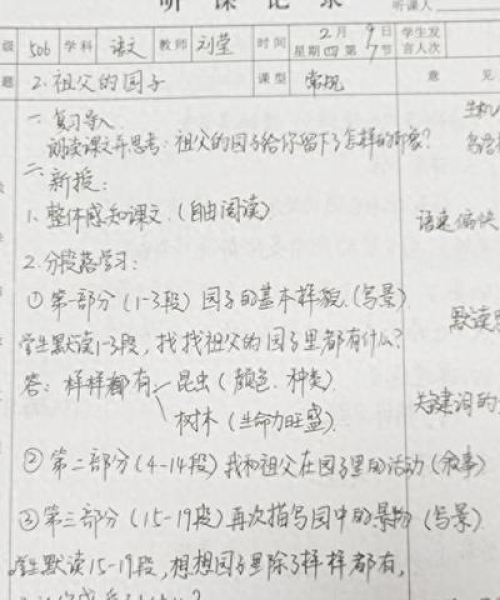 听课记录
听课人
级 506 学科 语文 教师 刘莹 时间 2月9日 星期四第7节 学生发言人次
题 2.祖父的园子 课型 常规 意见
一、复习导入
朗读课文并思考:祖父的园子给你留下了怎样的印象?
二、新授:
1.整体感知课文.(自由阅读)
语速偏快
2.分段落学习:
①第一部分(1-3段)园子的基本样貌.(写景)
学生默读1-3段,找找祖父的园子里都有什么?
默读
答:样样都有 昆虫(颜色、种类)
树木(生命力旺盛)
关键词的
②第二部分(4-14段)我和祖父在园子里的活动(叙事)
③第三部分(15-19段)再次描写园中的景物(写景)
学生默读15-19段,想想园子里除了样样都有,